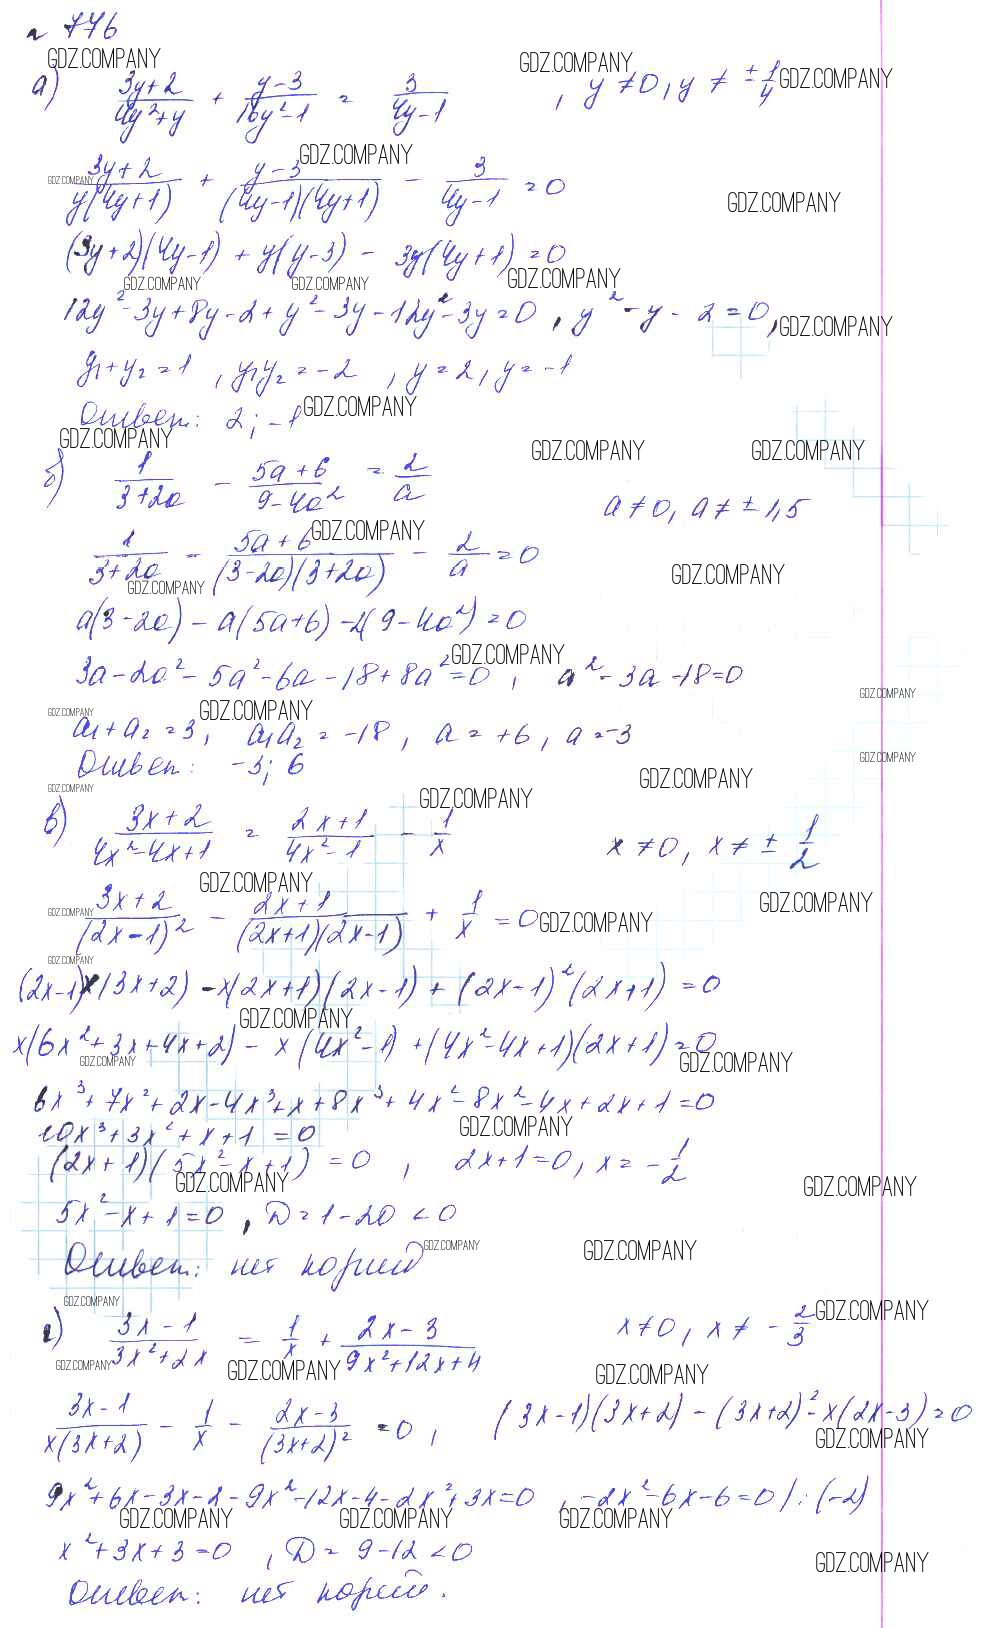 № 776
GDZ.COMPANY
а) (3y+2)/(4y²+y) + (y-3)/(16y²-1) = 3/(4y-1) , y ≠ 0, y ≠ ± 1/4
(3y+2)/(y(4y+1)) + (y-3)/((4y-1)(4y+1)) - 3/(4y-1) = 0
(3y+2)(4y-1) + y(y-3) - 3y(4y+1) = 0
12y² - 3y + 8y - 2 + y² - 3y - 12y² - 3y = 0 , y² - y - 2 = 0,
y₁ + y₂ = 1 , y₁y₂ = -2 , y = 2, y = -1
Ответ: 2; -1
б) 1/(3+2a) - (5a+6)/(9-4a²) = 2/a a ≠ 0, a ≠ ± 1,5
1/(3+2a) - (5a+6)/((3-2a)(3+2a)) - 2/a = 0
a(3-2a) - a(5a+6) - 2(9-4a²) = 0
3a - 2a² - 5a² - 6a - 18 + 8a² = 0 , a² - 3a - 18 = 0
a₁ + a₂ = 3, a₁a₂ = -18, a = +6, a = -3
Ответ: -3; 6
в) (3x+2)/(4x²-4x+1) = (2x+1)/(4x²-1) - 1/x x ≠ 0, x ≠ ± 1/2
(3x+2)/(2x-1)² - (2x+1)/((2x+1)(2x-1)) + 1/x = 0
(2x-1)x(3x+2) - x(2x+1)(2x-1) + (2x-1)²(2x+1) = 0
x(6x²+3x+4x+2) - x(4x²-1) + (4x²-4x+1)(2x+1) = 0
6x³ + 7x² + 2x - 4x³ + x + 8x³ + 4x² - 8x² - 4x + 2x + 1 = 0
10x³ + 3x² + x + 1 = 0
(2x+1)(5x²-x+1) = 0 , 2x+1 = 0, x = - 1/2
5x² - x + 1 = 0 , D = 1 - 20 < 0
Ответ: нет корней
г) (3x-1)/(3x²+2x) = 1/x + (2x-3)/(9x²+12x+4) x ≠ 0, x ≠ - 2/3
(3x-1)/(x(3x+2)) - 1/x - (2x-3)/(3x+2)² = 0 , (3x-1)(3x+2) - (3x+2)² - x(2x-3) = 0
9x² + 6x - 3x - 2 - 9x² - 12x - 4 - 2x² + 3x = 0 , -2x² - 6x - 6 = 0 / : (-2)
x² + 3x + 3 = 0 , D = 9 - 12 < 0
Ответ: нет корней.